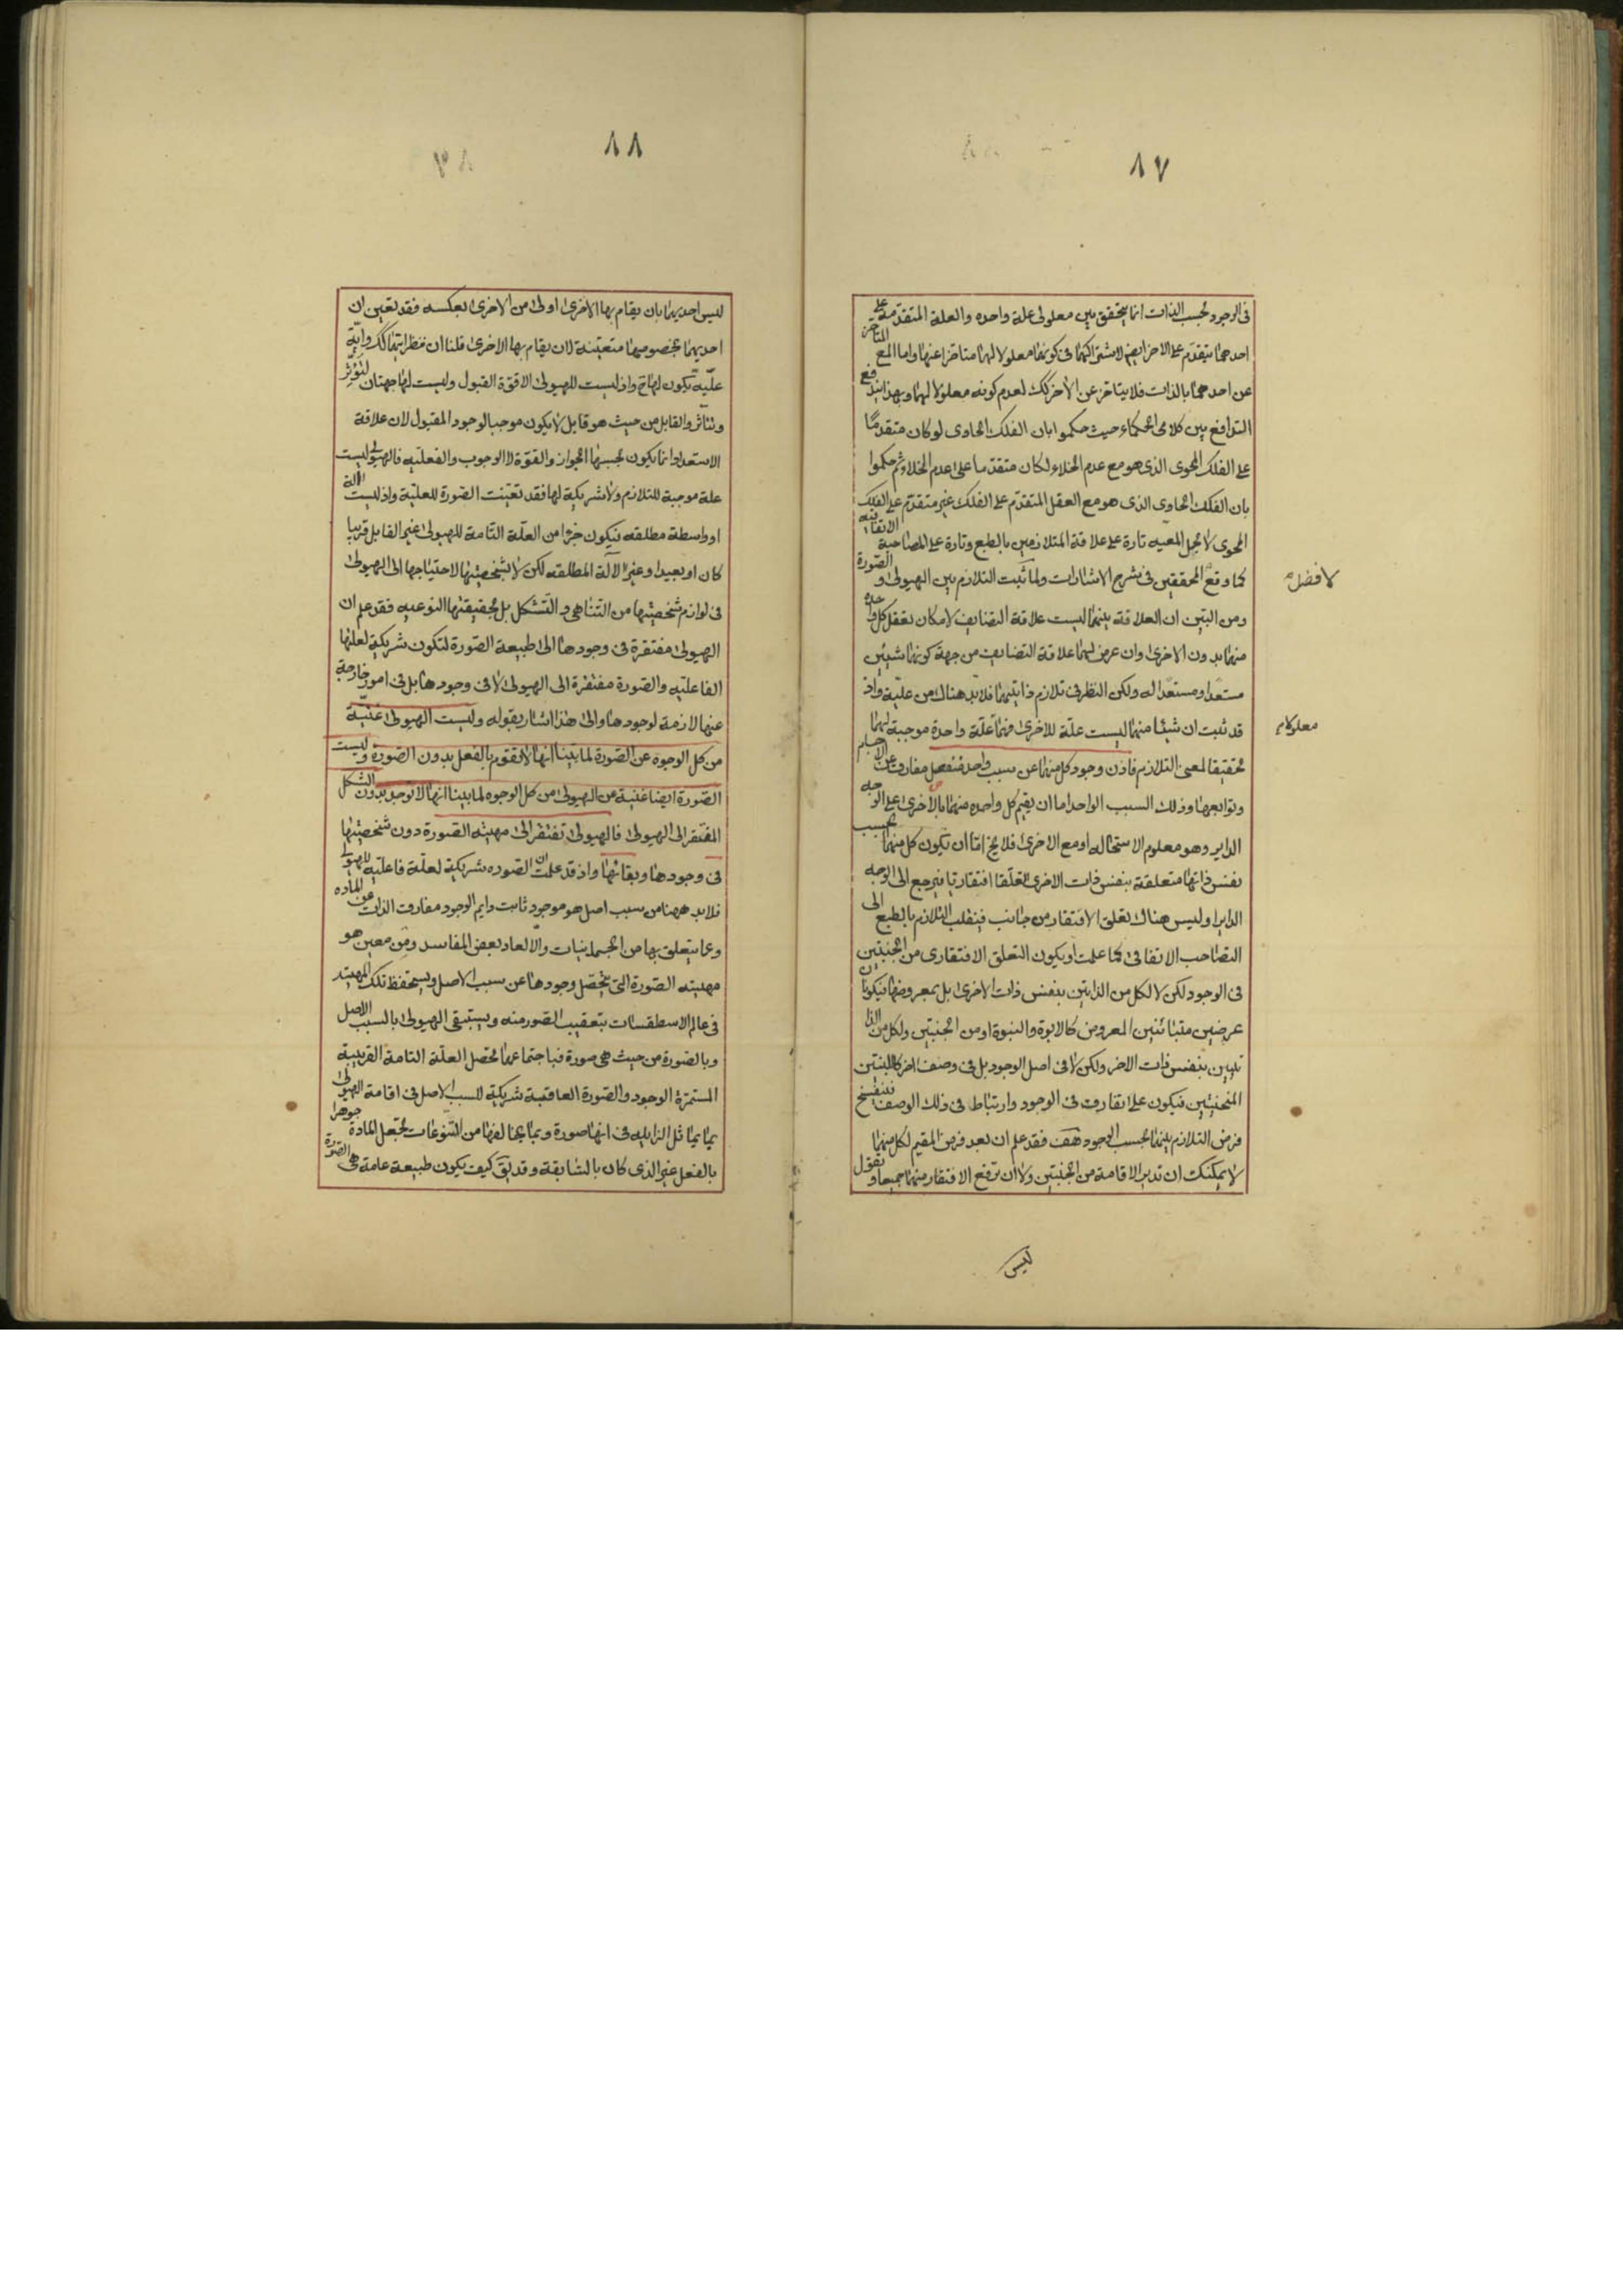 ٨٧
فى الوجود بحسب الذات انما يتحقق بين معلولى علة واحده والعلة المتقدمة على
احدهما يتقدم على الاخر ايضا لاشتراكهما فى كونهما معلولا لها متاخرا عنها واما المع المتاخر
عن احدهما بالذات فلا يتاخر عن الاخر كك لعدم كونه معلولا لهما وبهذا يندفع
التدافع بين كلامى الحكماء حيث حكموا بان الفلك الحاوى لو كان متقدما
على الفلك المحوى الذى هو مع عدم الخلاء لكان متقدما على عدم الخلاء وثم حكموا
بان الفلك الحاوى الذى هو مع العقل المتقدم على الفلك غير متقدم على الفلك
المحوى لا بحمل المعيه تارة على علاقة المتلازمين بالطبع وتارة على المصاحبة الاتفاقية
كما وقع للمحققين فى شرح الاشارات ولما ثبت التلازم بين الهيولى والصورة
لافضل
ومن البين ان العلاقة بينهما ليست علاقة التضايف لامكان تعقل كل واحده
منهما بدون الاخرى وان عرض لهما علاقة التضايف من جهة كونهما شيئين
مستعدا ومستعدا له ولكن النظر فى تلازم ذاتيهما فلا بد هناك من علية واذ
قد ثبت ان شيئا منهما ليست علة للاخرى فهما علة واحدة موجبة لهما
معلولام
تحقيقا لمعنى التلازم فاذن وجود كل منهما عن سبب واحد منفصل مفارق عن الاجسام
وتوابعها وذلك السبب الواحد اما ان يقيم كل واحده منهما بالاخرى على الوجه
الداير وهو معلوم الاستحاله او مع الاخرى فلا يخ اما ان تكون كل منهما بحسب
نفس ذاتها متعلقة بنفس ذات الاخرى تعلقا افتقاريا فيرجع الى الوجه
الداير او ليس هناك تعلق الافتقار من جانب فينقلب التلازم بالطبع الى
التصاحب الاتفاقى كما علمت او يكون التعلق الافتقارى من الجنبتين
فى الوجود لكن لا لكل من الذاتين بنفس ذات الاخرى بل بمعروضها فيكونان
عرضين متباينين المعروض كالابوة والبنوة او من الجنبتين ولكل من الذا
تيين بنفس ذات الاخر ولكن لا فى اصل الوجود بل فى وصف اخر كاللبنتين
المنحنيتين فيكون على اتفاق فى الوجود وارتباط فى ذلك الوصف فينفسخ
فرض التلازم بينهما بحسب الوجود هف فقد علم ان بعد فرض المقيم لكل منهما
لا يمكنك ان تدير الاقامة من الجنبتين ولا ان ترفع الافتقار منهما جميعا وتقول
ليس
٨٨
ليس احديهما بان يقام بها الاخرى اولى من الاخرى بعكسه فقد تعين ان
احديهما بخصوصها متعينة لان يقام بها الاخرى قلنا ان ننظر ايتهما كك واية
علية يكون لها ح واذ ليست للهيولى الا قوة القبول وليست لها جهتان لتؤثر
وتتاثر والقابل من حيث هو قابل لا يكون موجبا لوجود المقبول لان علاقة
الاستعداد انما يكون بحسبها الجواز والقوة لا الوجوب والفعلية فالهيولى ليست
علة موجبة للتلازم ولا شريكة لها فقد تعينت الصورة للعلية واذ ليست آلة
او واسطة مطلقه فيكون جزءا من العلة التامة للهيولى غير القابل قريبا
كان او بعيدا وغير الالة المطلقه لكن لا بشخصيتها لاحتياجها الى الهيولى
فى لوازم شخصيتها من التناهى والتشكل بل بحقيقتها النوعيه فقد علم ان
الهيولى مفتقرة فى وجودها الى طبيعة الصورة لتكون شريكة لعلتها
الفاعليه والصورة مفتقرة الى الهيولى لا فى وجودها بل فى امور خارجة
عنها لازمة لوجودها والى هذا اشار بقوله وليست الهيولى غنية
من كل الوجوه عن الصورة لما بينا انها لا تقوم بالفعل بدون الصورة وليست
الصورة ايضا غنية عن الهيولى من كل الوجوه لما بينا انها لا توجد بدون الشكل
المفتقر الى الهيولى فالهيولى تفتقر الى مهيته الصورة دون شخصيتها
فى وجودها وبقائها واذ قد علمت ان الصوره شريكة لعلة فاعليه للهيولى
فلا بد ههنا من سبب اصل هو موجود ثابت دايم الوجود مفارق الذات عن الماده
وعما يتعلق بها من الجسمانيات والا لعاد بعض المفاسد ومن معين هو
مهيته الصورة التى يتحصل وجودها عن سبب الاصل ويستحفظ تلك المهيته
فى عالم الاسطقسات بتعقيب الصور منه ويستبقى الهيولى بالسبب الاصل
وبالصورة من حيث هى صورة فباجتماعهما تحصل العلة التامة القريبة
المستمرة الوجود والصورة العاقبة شريكة للسبب الاصل فى اقامة الهيولى
بما يماثل الزايله فى انها صورة وبما يخالفها من النوعات تجعل المادة جوهرا
بالفعل غير الذى كان بالسابقة وقد يق كيف يكون طبيعة عامة هى الصورة